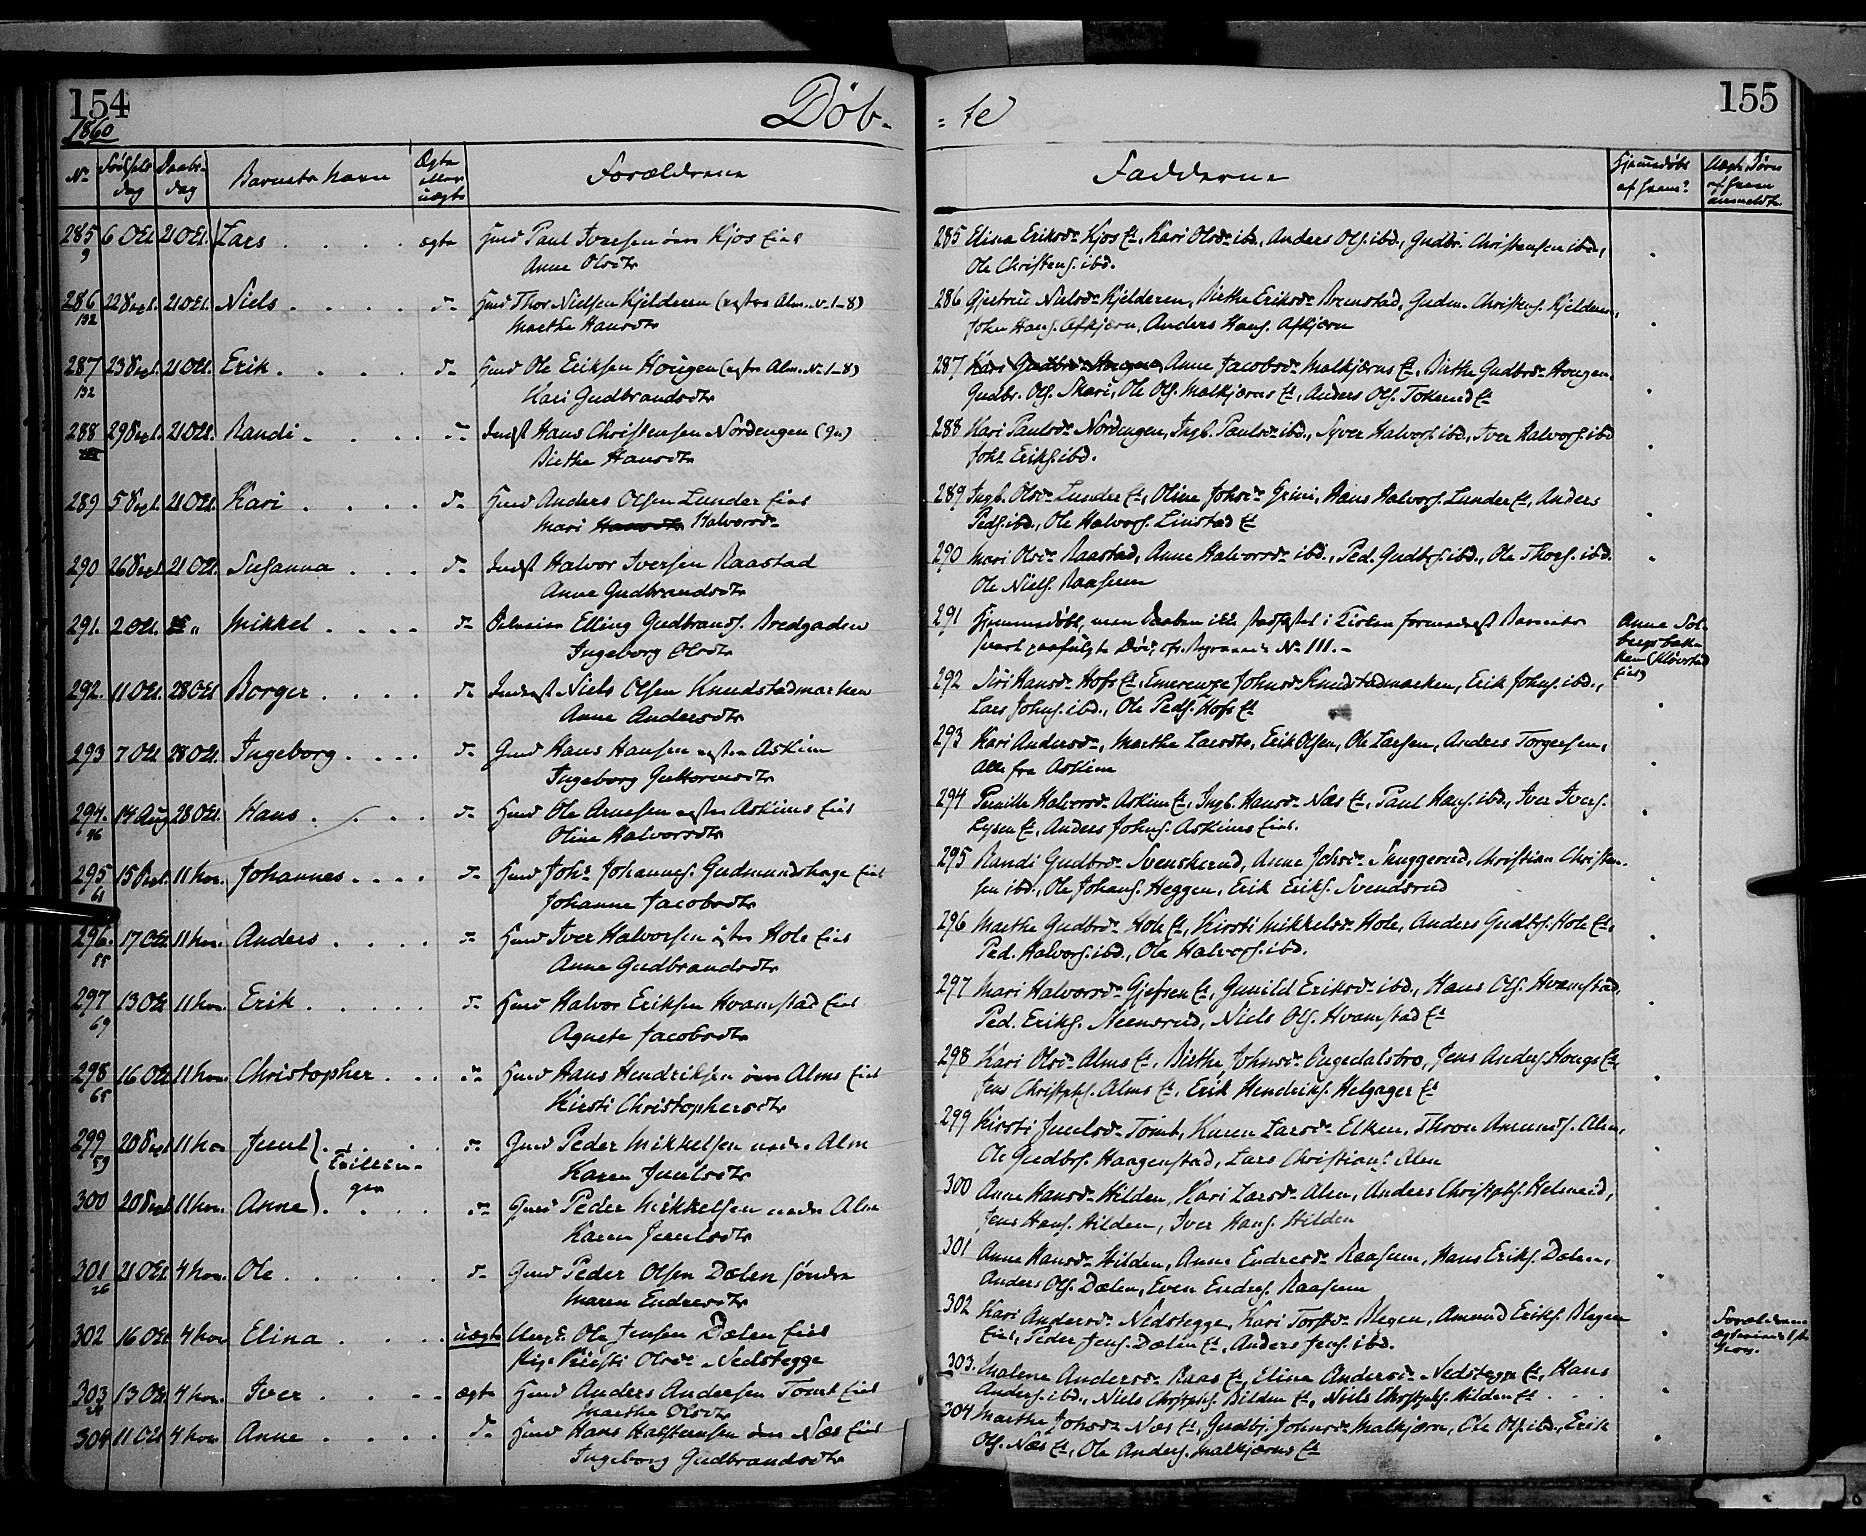 154
1860
Døb-
No
Fødsels
dag
Daabs-
dag
Barnets Navn
Ægte
eller
uægte
Forældrene
285 6 Oct. 21 Oct. Lars ægte Huusmd Paul Iversen Kjos Eiet
9 Anne Olsdtr
286 22 Sept. 21 Oct. Niels do Thor Nielsen Kjelderen (Alm. No. 1-8)
132 Marthe Hansdtr
287 23 Sept. 21 Oct. Erik do Ole Eriksen Hougen (Alm. No. 1-8)
132 Kari Gudbrandsdtr
288 29 Sept. 21 Oct. Randi do Indst Hans Christensen Nordengen
Birthe Hansdtr
289 5 Sept. 21 Oct. Kari do Anders Olsen Lunder Eiet
Mari Halvorsdr
290 26 Sept. 21 Oct. Susanna do Indst Halvor Iversen Raastad
Anne Gudbrandsdtr
291. 2 Oct. Mikkel do Elling Gudbrands. Bredgaden
Ingeborg Olsdtr
292. 11 Oct. 28 Oct. Borger do Inderst Niels Olsen Knudstadmarken
Anne Andersdtr
293 7 Oct. 28 Oct. Ingeborg do Gmd Hans Hansen Askim
Ingeborg Guttormsdtr
294. 14 Aug 28 Oct. Hans do Ole Arnesen Askims Eiet
96 Oline Halvorsdtr
295 15 11 Nov. Johannes do Johs Johannes. Gudmundshage Eiet
61 Johanne Jacobsdtr
296. 17 Oct. 11 Nov. Anders do Iver Halvorsen Hole Eiet
55 Anne Gudbrandsdtr
297 13 Oct 11 Nov. Erik do Halvor Eriksen Hvamstad Eiet
69 Agnete Jacobsdtr
298 16 Oct 11 Nov. Christopher do Hans Hendriksen Alms Eiet
65 Kirsti Christophersdtr
299 20 Sept 11 Nov Juul } do Gmd Peder Mikkelsen nedre Alm
59 Tvillin- Karen Juulsdtr
gen
300 20 Sept 11 Nov. Anne } do Gmd Peder Mikkelsen nedre Alm
Karen Juulsdtr
301 21 Oct. 4 Nov. Ole do Gmd Peder Olsen Dælen søndre
26 Maren Endresdtr
302 16 Oct 4 Nov Elina uægte Ungk. Ole Jensen Dælen Eiet
Pige Kirsti Olsdr Nedstegge
303 13 Oct 4 Nov. Iver ægte Anders Andersen Tomt Eiet
Marthe Olsdtr
304 11 Oct 4 Nov Anne do Hans Halstensen Næs Eiet
Ingeborg Gudbrandsdtr
-te
155
Fadderne
Hjemmedøbt
af hvem?
Uægte Børn
af hvem
anmeldte
285 Elina Eriksdr Kjos Et, Kari Olsdr ibd., Anders Ols. ibd., Gudbr. Christensen ibd.,
Ole Christens. ibd.
286 Gjertrud Nielsdr Kjelderen, Birthe Eriksdr Brenstad, Gudm. Christens. Kjelderen,
John Hans. Afkjærn, Anders Hans. Afkjærn
287 Anne Jacobsdr Malkjærns Et, Birthe Gudbrdr Hougen,
Gudbr. Ols. Skari, Ole Ols. Malkjærns Et, Anders Ols. Et
288 Kari Paulsdr Nordengen, Ingb. Paulsdr ibd., Syver Halvors. ibd., Iver Halvors. ibd
Johs Eriks. ibd.
289 Ingb. Olsdr Lunder Et, Oline Johsdr Grini, Hans Halvors. Lunder Et, Anders
Peds. ibd., Ole Halvors. Linstad Et
290 Mari Olsdr Raastad, Anne Halvorsdr ibd., Ped. Gudbrs. ibd., Ole Thors. ibd.
Ole Niels. Raassum
291 Hjemmedøbt, men Daaben ikke stadfæstet i Kirken formedelst Barnets
snart paafulgte Død, cfr. No 111.-
292 Siri Hansdr Hofs Et, Emerenze Johnsdr Knudstadmarken, Erik Johns. ibd.,
Lars Johns. ibd., Ole Peds. Hofs Et
293 Kari Andersdr, Marthe Larsdtr, Erik Olsen, Ole Larsen, Anders Torgersen,
Alle fra Askim
294 Pernille Halvorsdr Askim Et, Ingb. Hansdr Næs Et, Paul Hans. ibd., Iver Ivers.
Lysen Et, Anders Johns. Askims Eiet.
295 Randi Gudbrdr Svenskerud, Anne Johsdr Snuggerud, Christian Christen-
sen ibd., Ole Johans. Heggen, Erik Eriks. Svendsrud
296 Marthe Gudbrdr Hole Et, Kirsti Mikkelsdr Hole, Anders Gudbrs. Hole Et,
Ped. Halvors. ibd., Ole Halvors. ibd.
297 Mari Halvorsdr Gjefsen Et, Gunild Eriksdr ibd., Hans Ols. Hvamstad,
Ped. Eriks. Neensrud, Niels Ols. Hvamstad Et
298 Kari Olsdr Alms Et, Birthe Johnsdr, Jens Anders. Hougs Et,
Jens Christphs. Alms Et, Erik Hendriks. Helgager Et
299 Kirsti Juulsdr Tomt, Karen Larsdr Elken, Thron Amunds. Alm,
Ole Gudbrs. Haagenstad, Lars Christians. Alm
300 Anne Hansdr Hilden, Kari Larsdr Alm, Anders Christphs. Helmeid,
Jens Hans. Hilden, Iver Hans. Hilden
301 Anne Hansdr Hilden, Anne Endresdr Raassum, Hans Eriks. Dælen,
Anders Ols. Dælen, Even Endres. Raassum
302 Kari Andersdr Nedstegge, Kari Torstdr Blegen, Amund Eriks. Blegen
Eiet, Peder Jens. Dælen Et, Anders Jens. ibd.
303. Malene Andersdr Raas Et, Eline Andersdr Nedstegge Et, Hans
Anders. ibd., Niels Christphs. Hilden Et, Niels Christphs. Hilden Et
304 Marthe Johsdr Næs Et, Gudbj. Johnsdr Malkjærn, Ole Ols. ibd., Erik
Ols. Næs Et, Ole Anders. Malkjærns Et
Anne
Kløvstad
Eiet)
Forældrene